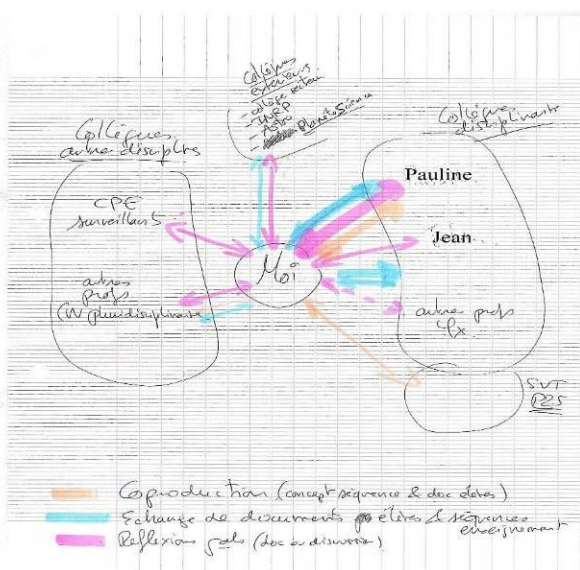 Collègues
extérieurs
- collège secteur
- INRP
- Astro
- Planète Science
Collègues
autres disciplines
CPE
surveillants
autres
profs
pluridisciplinaire
Moi
Collègues
disciplinaire
Pauline
Jean
autres profs
SVT
P25
Coproduction (concept séquence & doc élèves)
Echange de documents élèves & séquences
enseignement
Réflexions (doc ou discussion)